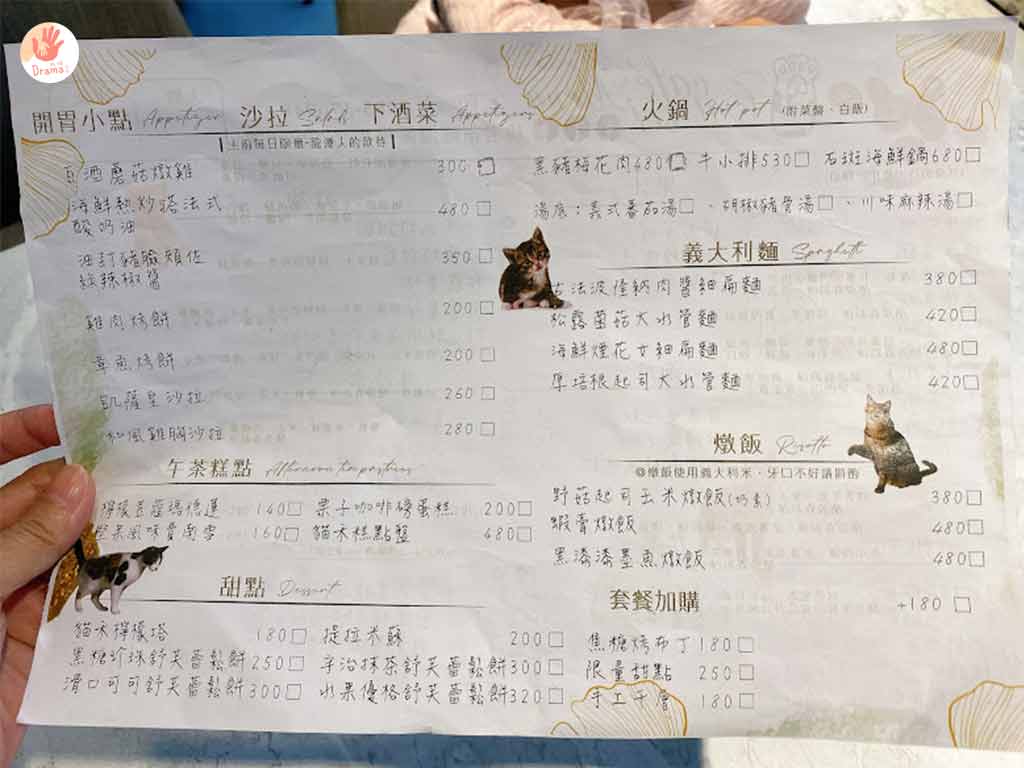 Drama
開胃小點 Appetizer 沙拉 Salad 下酒菜 Appetizers
主廚每日現燉-浪漫人的款待
酒蘑菇燉雞 300□
海鮮熱炒搭法式
酸奶油 480□
油封豬臉頰佐
紅辣椒醬 350□
雞肉烤餅 200□
章魚烤餅 200□
凱薩皇沙拉 260□
和風雞胸沙拉 280□
午茶糕點 Afternoon tea pastries
檸檬 140□ 栗子咖啡磅蛋糕 200□
堅果風味費南雪 160□ 貓咪糕點盤 480□
甜點 Dessert
貓咪檸檬塔 180□ 提拉米蘇 200□
黑糖珍珠舒芙蕾鬆餅 250□ 宇治抹茶舒芙蕾鬆餅 300□
滑口可可舒芙蕾鬆餅 300□ 水果優格舒芙蕾鬆餅 320□
火鍋 Hot pot (附菜盤、白飯)
黑豬梅花肉480□ 牛小排530□ 石斑海鮮鍋680□
湯底：義式番茄湯□、胡椒豬骨湯□、川味麻辣湯□
義大利麵 Spaghetti
古法波隆納肉醬細扁麵 380□
松露菌菇大水管麵 420□
海鮮煙花女細扁麵 480□
厚培根起司大水管麵 420□
燉飯 Risotto
◎燉飯使用義大利米，牙口不好請斟酌
野菇起司玉米燉飯(奶素) 380□
蝦膏燉飯 480□
黑漆漆墨魚燉飯 480□
套餐加購 +180 □
焦糖烤布丁 180□
限量甜點 250□
手工千層 180□